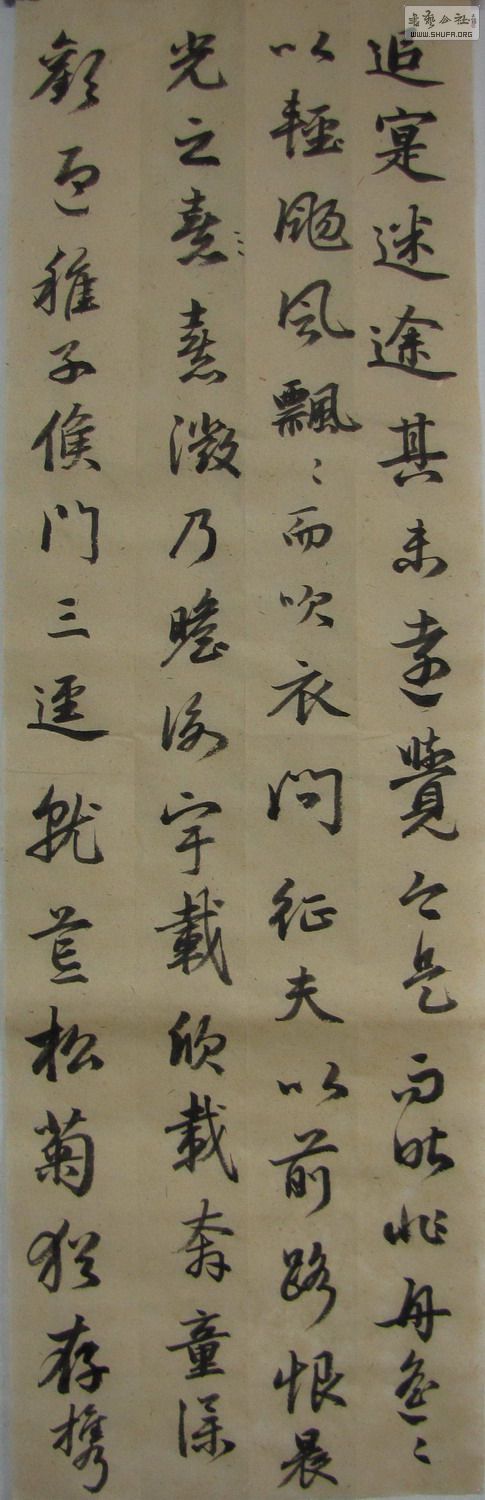 追寔迷途其未遠覺今是而昨非舟遙〻
以輕颺風飄〻而吹衣問征夫以前路恨晨
光之熹熹微乃瞻衡宇載欣載奔童僕
歡迎稚子候門三逕就荒松菊猶存携
書藝公社
WWW.SHUFA.ORG